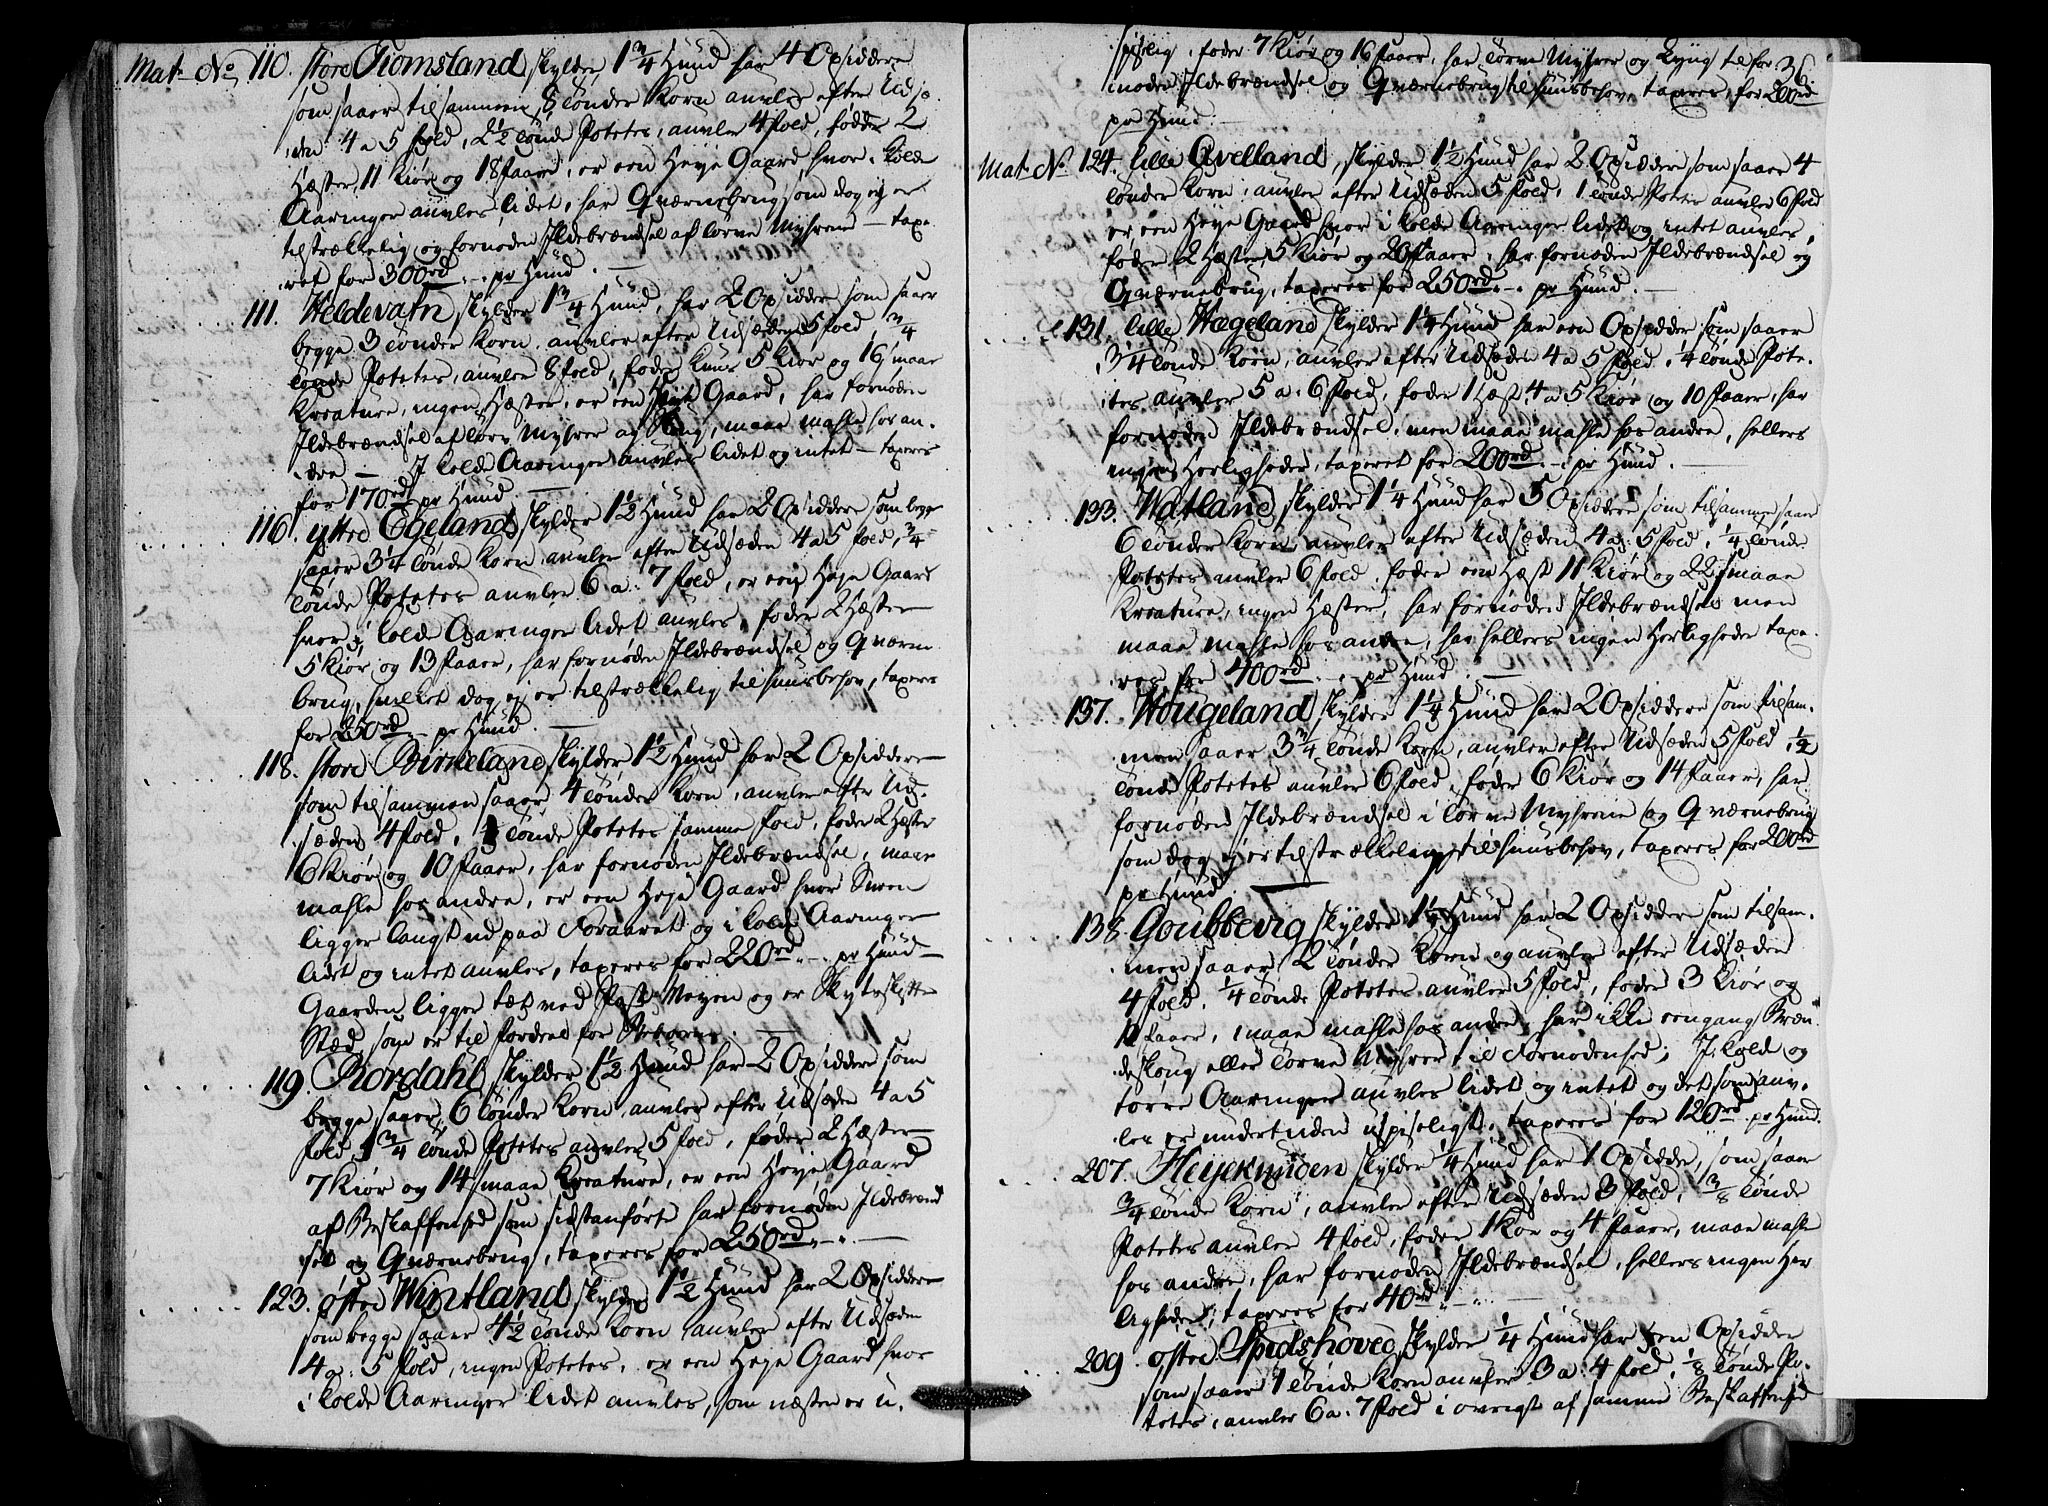 Mat. No. 110. store Tiomsland skylder 1 3/4 Huud har 4 Opsiddere
som saaer tilsammen 8 tønder Korn, auvler efter Udsæ-
den 4 a 5 fold, 2 1/2 tønde Potetes, auvler 4 fold, føder 2
Hæster, 11 Kiør og 18 faaer, er een Heye Gaard hvor i kolde
Aaringer auvles lidet, har Qværnebrug som dog ej er
tilstrækkelig og fornøden Ildebrændsel af törve Myhrene — taxe-
ret for 300rd „-„ pr Huud. —
111. Heldevatn skylder 1 3/4 Huud, har 2 Opsiddere som saaer
begge 3 tønder Korn, auvler efter Udsæden 5 fold, 3/4
tønde Potetes, auvler 8 fold, føder Kuns 5 Kiør og 16 smaae
Kreature, ingen Hæster, er een Heye Gaard, har fornøden
Ildebrændsel af törv Myhrer og Skoug, maae mahle hos an-
dre — I kolde Aaringer auvles lidet og intet — taxeres
for 170rd pr Huud. —
116. yttre Egeland skylder 1 1/2 Huud har 2 Opsiddere som begge
saaer 3 1/4 tønde Korn, auvler efter Udsæden 4 a 5 fold, 3/4
tønde Potetes auvler 6 a: 7 fold, er een Heye Gaard
hvor i kolde Aaringer lidet auvles, føder 2 Hæster
5 Kiør og 13 faaer, har fornøden Ildebrændsel og Qværn
brug, hvilket dog ej er tilstrækkelig til huusbehov, taxeres
for 250rd — pr Huud. —
118. store Birkeland skylder 1 1/2 Huud har 2 Opsiddere
som tilsammen saaer 4 tønder Korn, auvler efter Ud-
sæden 4 fold, 1 tønde Potetes samme fold, føder 2 Hæster
6 Kiør og 10 faaer, har fornøden Ildebrændsel, maae
mahle hos andre, er een Heye Gaard hvor Sneen
ligger langt ud paa Foraaret og i kolde Aaringer
lidet og intet auvles, taxeres for 220rd „-„ pr Huud —
Gaarden ligger tæt ved Post Veyen og er Skydsskifte
Stæd som er til fordeel for Beboerne. —
119. Rordahl skylder 1 1/2 Huud har 2 Opsiddere som
begge saaer 6 tønder Korn, auvler efter Udsæden 4 a 5
fold, 1 3/4 tønde Potetes auvler 5 fold, føder 2 Hæster
7 Kiør og 14 smaae Kreature, er een Heye Gaard
af Beskaffenhed som sidstanførte har fornøden Ildebrænd
sel og Qværnebrug, taxeres for 250rd „-„ —
123. østre Wintland skylder 1 1/2 Huud har 2 Opsiddere
som begge saaer 4 1/2 tønde Korn auvler efter Udsæden
4 a: 5 fold, ingen Potetes, er een Heye Gaard hvor
i kolde Aaringer lidet auvles, som næsten er u-
spiselig, føder 7 Kiør og 16 faaer, har törve Myhrer og Lyng til for
36.
nøden Ildebrændsel og Qværnebrug til huusbehov, taxeres for 200rd
pr Huud. —
Mat. No. 124. lille Qvelland, skylder 1 1/2 Huud har 2 Opsiddere som saaer 4
tønder Korn, auvler efter Udsæden 5 fold, 1 tønde Potetes auvler 6 fold
er een Heye Gaard hvor i kolde Aaringer lidet og intet auvles,
føder 2 Hæster, 5 Kiør og 20 faaer, har fornøden Ildebrændsel og
Qværnebrug, taxeres for 250rd „-„ pr Huud. —
131. lille Hægeland skylder 1 1/4 Huud har een Opsidder som saaer
3 1/4 tønde Korn, auvler efter Udsæden 4 a 5 fold, 1/4 tønde Pote-
tes auvler 5 a: 6 fold, føder 1 Hæst, 4 a 5 Kiør og 10 faaer, har
fornøden Ildebrændsel, men maae mahle hos andre, hellers
ingen Herligheder, taxeret for 200rd „-„ pr Huud. —
133. Watland skylder 1 1/4 Huud har 5 Opsiddere som tilsammen saaer
6 tønder Korn auvler efter Udsæden 4 a: 5 fold, 1/4 tønde
Potetes auvler 6 fold, føder een Hæst 11 Kiør og 22 smaae
Kreature, ingen Hæster, har fornøden Ildebrændsel men
maae mahle hos andre, har hellers ingen Herligheder taxe-
res for 400rd „-„ pr Huud. —
137. Hougeland skylder 1 1/4 Huud har 2 Opsiddere som tilsam-
men saaer 3 3/4 tønde Korn, auvler efter Udsæden 5 fold, 1/2
tønde Potetes auvler 6 fold, føder 6 Kiør og 14 faaer, har
fornøden Ildebrændsel i törve Myhrene og Qværnebrug
som dog ej er tilstrækkelig til huusbehov, taxeres for 200rd
pr Huud. —
138. Goubbevig skylder 1 1/4 Huud har 2 Opsiddere som tilsam-
men saaer 2 tønder Korn og auvler efter Udsæden
4 fold, 1/4 tønde Potetes auvler 5 fold, føder 3 Kiør og
faaer, maae mahle hos andre, har ikke eengang Bræn-
deskoug eller törve Myhrer til Fornødenhed; I kolde og
törre Aaringer auvles lidet og intet og det som auv-
les er undertiden uspiseligt, taxeres for 120rd pr Huud.
207. Heyekunden skylder 1/4 Huud har 1 Opsidder, som saaer
3/4 tønde Korn, auvler efter Udsæden 3 fold, 3/8 tønde
Potetes auvler 4 fold, føder 1 Kor og 4 faaer, maae mahle
hos andre, har fornøden Ildebrændsel, hellers ingen Her
ligheder, taxeres for 40rd „-„ —
209. østre Spidshoved skylder 1/4 Huud har een Opsidder
som saaer 1 tønde Korn auvler 3 a: 4 fold, 1/8 tønde Po-
tetes, auvler 6 a: 7 fold i övrigt af samme Beskaffenhed